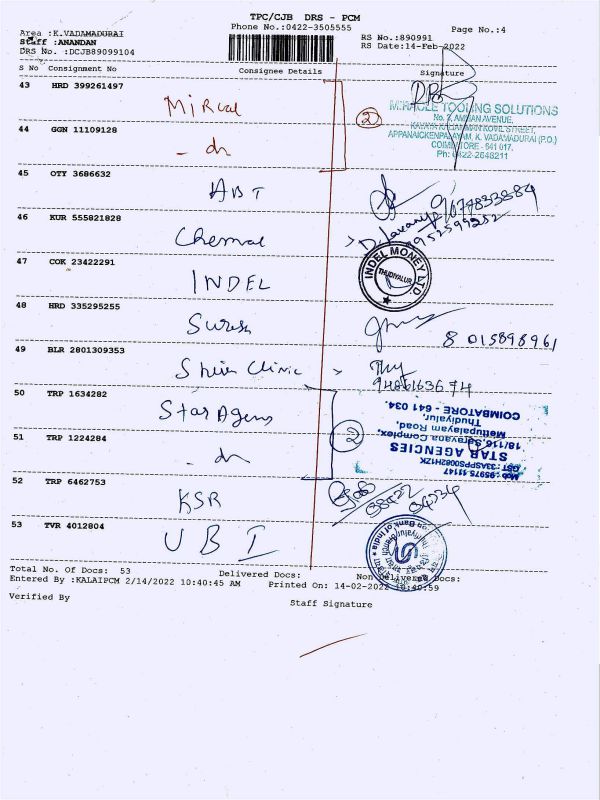 TPC/CJB DRS - PCM
Phone No.:0422-3505555
Page No.:4
Area :K.VADAMADURAI
Staff :ANANDAN
DRS No. :DCJB89099104
RS No.:890991
RS Date:14-Feb-2022
S No Consignment No Consignee Details Signature
43 HRD 399261497
MIRACLE TOOLING SOLUTIONS
No. 7, AMMAN AVENUE,
APPANAICKENPALAYAM, K. VADAMADURAI (P.O.)
COIMBATORE - 641 017.
Ph: 0422-2648211
2
44 GGN 11109128
45 OTY 3686632
ABT
46 KUR 555821828
47 COK 23422291
INDEL
INDEL MONEY LTD
THUDIYALUR
48 HRD 335295255
Suresh
8 015898961
49 BLR 2801309353
Clinic
50 TRP 1634282
Star Agens
2
51 TRP 1224284
Mob : 95975 11147
GST : 33ASPPS0082H1ZK
STAR AGENCIES
18/116, Saravana Complex,
Mettupalayam Road,
Thudiyalur,
COIMBATORE - 641 034.
52 TRP 6462753
KSR
53 TVR 4012804
UBI
Total No. Of Docs: 53 Delivered Docs: Non Delivered Docs:
Entered By :KALAIPCM 2/14/2022 10:40:45 AM Printed On: 14-02-2022 10:40:59
Verified By
Staff Signature